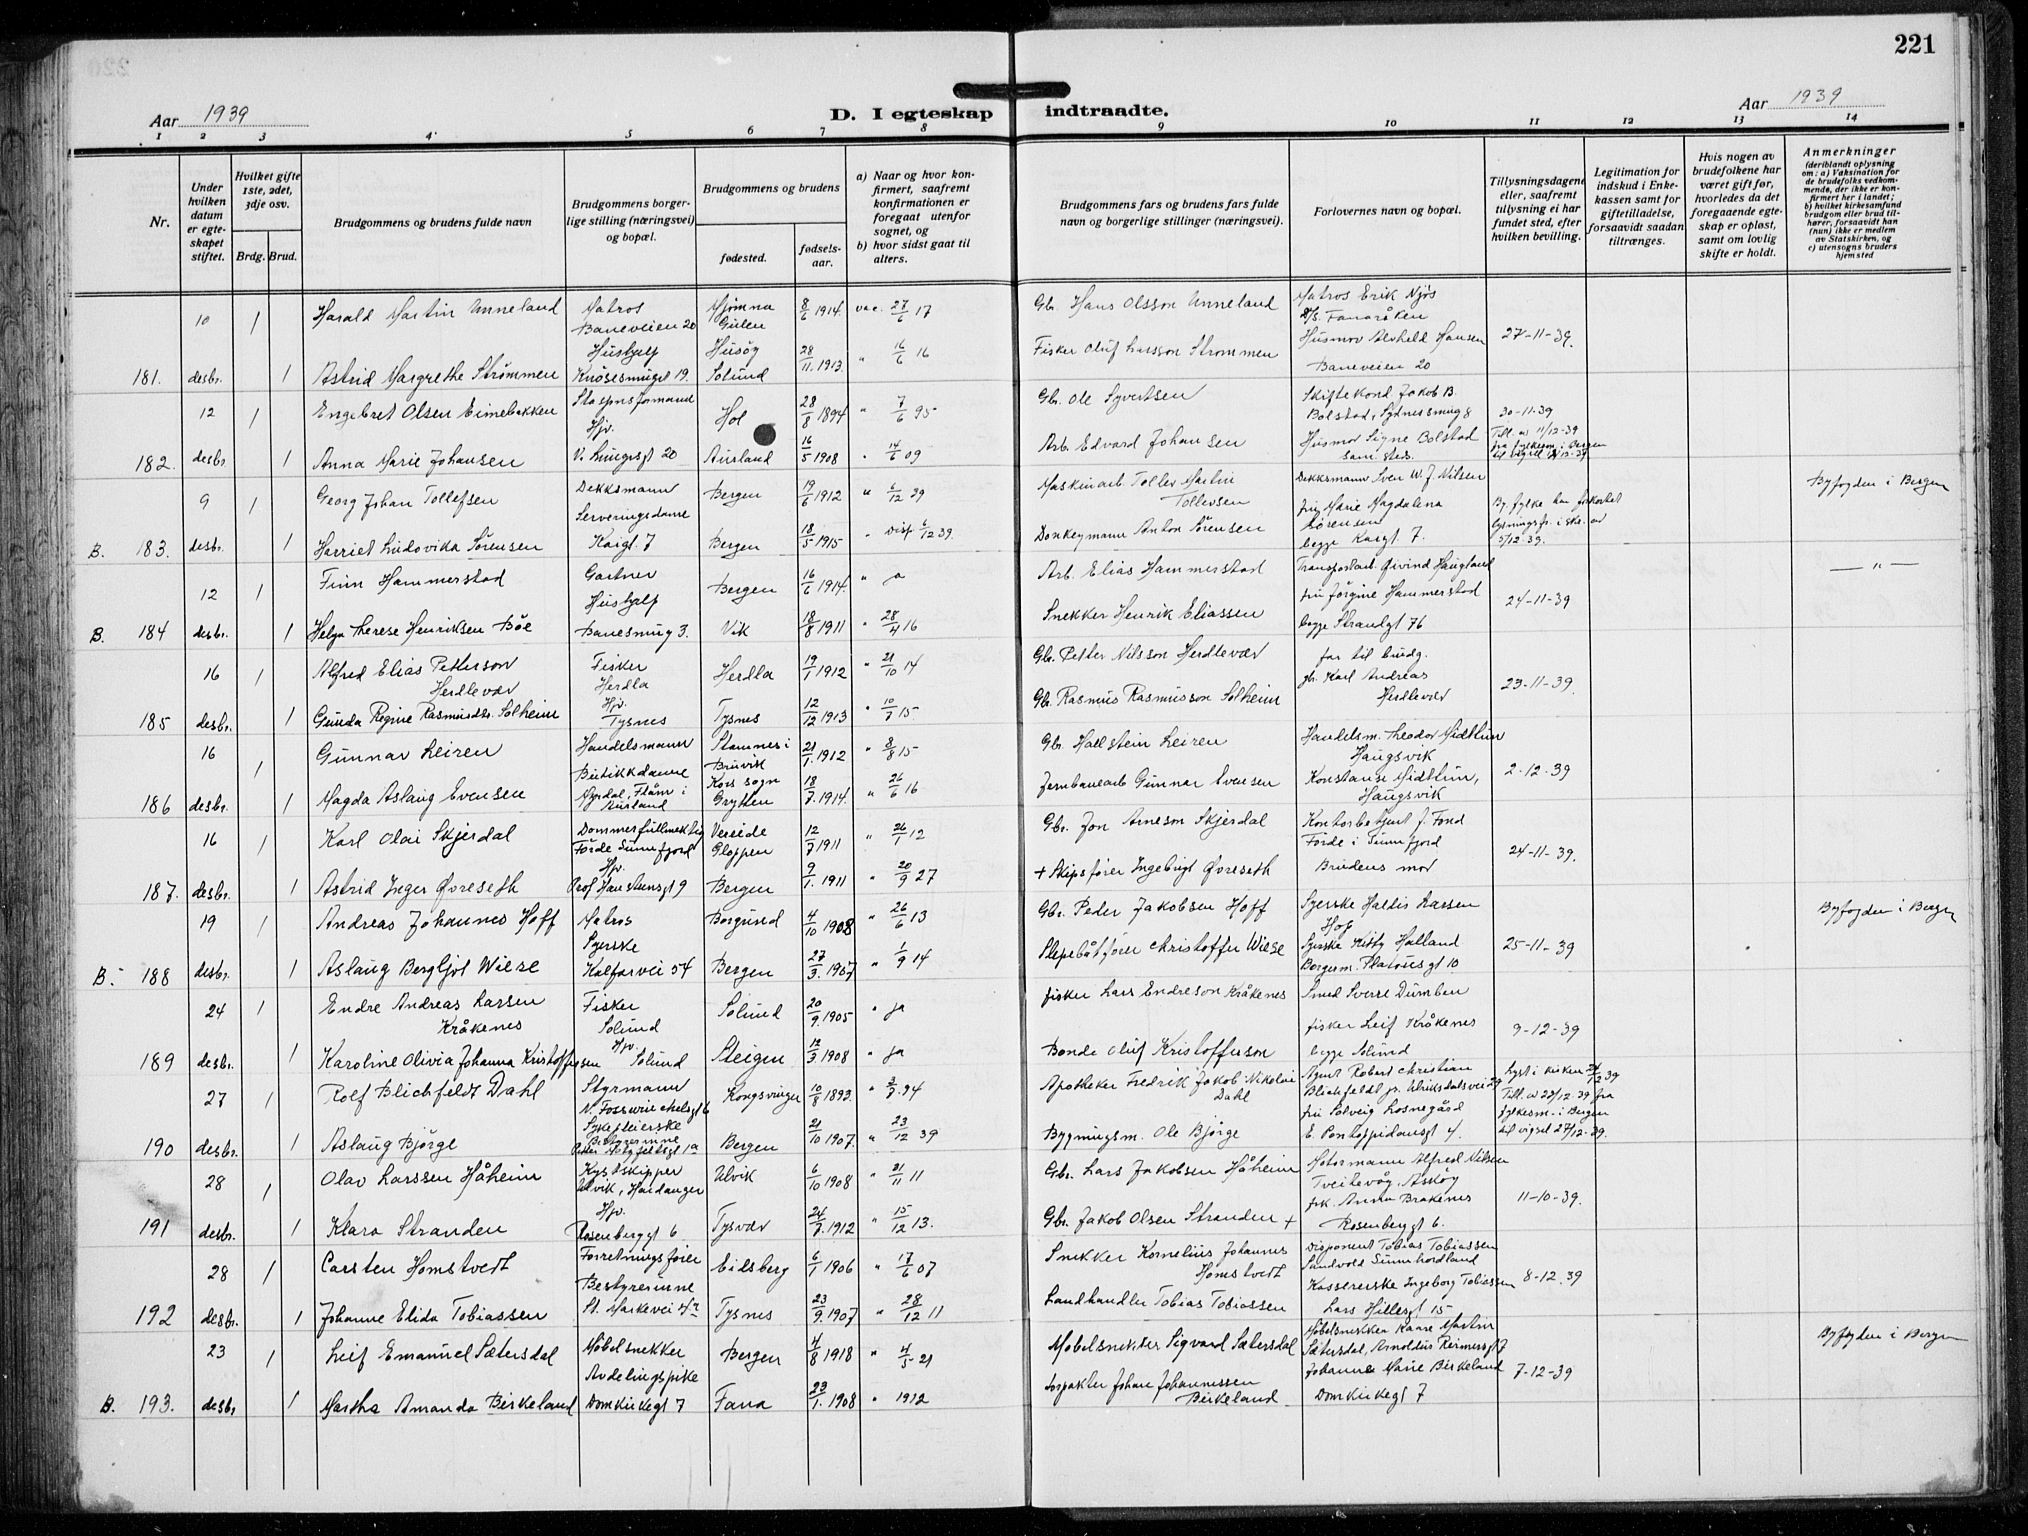 221
Aar 1939
D. I egteskap indtraadte.
Aar 1939
1 2 3 4 5 6 7 8 9 10 11 12 13 14
Nr.
Under hvilken datum er egteskapet stiftet.
Hvilket gifte 1ste, 2det, 3dje osv.
Brdg. Brud.
Brudgommens og brudens fulde navn
Brudgommens borgerlige stilling (næringsvei) og bopæl.
Brudgommens og brudens
fødested.
fødselsaar.
a) Naar og hvor konfirmert, saafremt konfirmationen er foregaat utenfor sognet, og
b) hvor sidst gaat til alters.
Brudgommens fars og brudens fars fulde navn og borgerlige stillinger (næringsvei).
Forlovernes navn og bopæl.
Tillysningsdagene eller, saafremt tillysning ei har fundet sted, efter hvilken bevilling.
Legitimation for indskud i Enkekassen samt for giftetilladelse, forsaavidt saadan tiltrænges.
Hvis nogen av brudefolkene har været gift før, hvorledes da det foregaaende egteskap er opløst, samt om lovlig skifte er holdt.
Anmerkninger
(deriblandt oplysning om: a) Vaksination for de brudefolks vedkommende, der ikke er konfirmert her i landet; b) hvilket kirkesamfund brudgom eller brud tilhører, forsaavidt han (hun) ikke er medlem av Statskirken, og c) utensogns bruders hjemsted
10 1 Harald Martin Anneland Matros Baneveien 20 Mjømna Gulen 8/6 1914 vac. 27/6 17 Gbr. Hans Olsson Anneland Matros Erik Njøs D/s. Fanaråken
181. desbr. 1 Astrid Margrethe Strømmen Hushjelp Knøsesmuget 19. Husøy Solund 28/11. 1913. " 16/6 16 Fisker Oluf Larsson Strømmen Husmor Alvhild Hansen Baneveien 20 27-11-39.
12 1 Engebret Olsen Eimebakken Stasjonsformand Hol 28/8 1894 " 7/6 95 Gbr. Ole Syvertsen Skiftekond Jakob B. Bolstad, Sydnessmug 8 30-11-39
182. desbr 1 Anna Marie Johansen Hjv. V. Muregt 20 Aurland 16/5 1908 " 14/6 09 Arb. Edvard Johansen Husmor Signe Bolstad sam. steds. Till. av 11/12-39 fra fylkesm. i Bergen til vigsel 12/12-39
9 1 Georg Johan Tollefsen Dekksmann Bergen 19/6 1912 " 6/12 39 Maskinarb Tollev Martin Tollevsen Dekksmann Sven W. J. Nilsen Byfogden i Bergen
B. 183. desbr. 1 Harriet Ludovika Sørensen Serveringsdame Kaigt. 7 Bergen 18/5 1915 " Disp 6/12 39. Donkeymann Anton Sørensen frü Marie Magdalena Sørensen begge Kaigt 7. By. fylke har forkortet lysningsfr. i skr. av 5/12 39.
12 1 Finn Hammerstad Gartner Bergen 16/6 1914. " a Arb. Elias Hammerstad Transportarb. Øivind Haugland — " —
B. 184 desbr. 1 Helga Therese Henriksen Bøe Hushjelp Banesmug 3. Vik 18/8 1911 " 28/4 16 Snekker Henrik Eliassen frü Jørgine Hammerstad begge Strandgt 76 24-11-39
16 1 Alfred Elias Petterson Herdlevær Fisker Herdla Herdla 19/1 1912 " 21/10 14 Gbr. Petter Nilsson Herdlevær far til brudg.
185 desbr. 1 Gunda Regine Rasmusdtr. Solheim Hjv. Tysnes Tysnes 12/12 1913 " 10/7 15 Gbr. Rasmus Rasmusson Solheim gb. Karl Andreas Herdlevær 23-11-39.
16 1 Gunnar Leiren Handelsmann Stamnes i Bruvik 21/1. 1912 " 8/8 15 Gbr. Hallstein Leiren Handelsm. Theodor Midttun Haugsvik
186 desbr. 1 Magda Aslaug Evensen Butikkdame Myrdal, Flåm i Aurland Kors sogn Grytten 18/7. 1914. " 26/6 16 Jernbanearb Gunnar Evensen Konstanse Midttun, Haugsvik 2-12-39
16 1 Karl Olai Skjerdal Dommerfullmektig Førde Sunnfjord Vereide Gloppen 12/7 1911 " 26/1 12 Gbr. Jon Arneson Skjerdal Kontorbetjent J. Fond Førde i Sunnfjord
187. desbr. 1 Astrid Inger Øvreseth Hjv. Prof Hansteensgt 9 Bergen 9/1. 1911 " 20/9 27 + Skipsfører Ingebrigt Øvreseth Brudens mor 24-11-39.
19 1 Andreas Johannes Hoff Matros Borgund 4/10 1908 " 26/6 13 Gbr. Peder Jakobsen Hoff Syerske Haldis Larsen Hop Byfogden i Bergen
B. 188 desbr. 1 Aslaug Bergljot Wiese Syerske Kalfarvei 54 Bergen 27/3. 1907 " 1/9 14 Slepebåtfører Christoffer Wiese Syerske Kitty Halland Borgerm. Platousgt 10 25-11-39
24 1 Endre Andreas Larsen Kråkenes Fisker Solund Solund 20/9. 1905 " ja fisker Lars Endreson Kråkenes Smed Sverre Dumben
189 desbr. 1 Karoline Olivia Johanna Kristoffersen Hjv. Solund Steigen 12/3 1908 " ja Bonde Oluf Kristofferson fisker Leif Kråkenes begge Solund 9-12-39
27 1 Rolf Blichfeldt Dahl Styrmann Kongsvinger 10/8 1893. " 2/7.94 Apotheker Fredrik Jakob Nikolai Dahl Agent Robert Christian Blichfeldt jr. Ulriksdalsvei 29 Lyst i kirken 24/12 39
190 desbr. 1 Aslaug Bjørge Sykepleierske Bestyrerinne Bergen 21/10 1907. " 23/12 39 Bygningsm. Ole Bjørge frü Solveig Losnegård E. Pontoppidansgt 4. Till. av 23/12-39 fra fylkesm. i Bergen til vigsel 27/12-39.
28 1 Olav Larssen Håheim Kystskipper Ulvik, Hardanger Ulvik 6/10 1908 " 21/11 11 Gbr. Lars Jakobsen Håheim Motormann Alfred Nilsen Tveitevåg, Askøy
191 desbr. 1 Klara Stranden Hjv. Rosenberggt 6 Tysvær 24/7. 1912 " 15/12 13. Gbr. Jakob Olsen Stranden + frk. Anna Brakenes Rosenberggt 6. 11-10-39.
28 1 Carsten Homstvedt Forretningsfører Eidsberg 6/1 1906 " 17/6 07 Snekker Kornelius Johannes Homstvedt Disponent Tobias Tobiassen Sandvold Sunnhordland
192 desbr. 1 Johanne Elida Tobiassen Bestyrerinne St. Markevei Tysnes 23/9. 1907 " 28/12 11 Landhandler Tobias Tobiassen Kassererske Ingeborg Tobiassen Lars Hillesgt 15 8-12.39
23 1 Leif Emanuel Sætersdal Møbelsnekker Bergen 4/8 1918 " 4/5-21 Møbelsnekker Sigvard Sætersdal Møbelsnekker Kaare Martin Sætersdal, Arnoldus Reimersgt 7 Byfogden i Bergen
B. 193. desbr 1 Martha Amanda Birkeland Avdelingspike Domkirkegt 7 Fana 23/1. 1908 " 1912 Forpakter Johan Johannessen Birkeland Johanne Marie Birkeland Domkirkegt 7 7-12-39